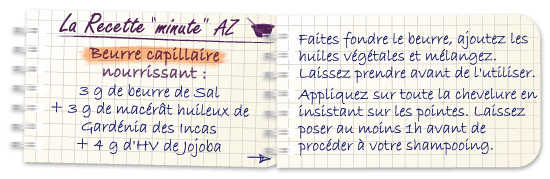 La Recette "minute" AZ
Beurre capillaire
nourrissant :
3 g de beurre de Sal
+ 3 g de macérât huileux de
Gardénia des Incas
+ 4 g d'HV de Jojoba
Faites fondre le beurre, ajoutez les
huiles végétales et mélangez.
Laissez prendre avant de l'utiliser.
Appliquez sur toute la chevelure en
insistant sur les pointes. Laissez
poser au moins 1h avant de
procéder à votre shampooing.